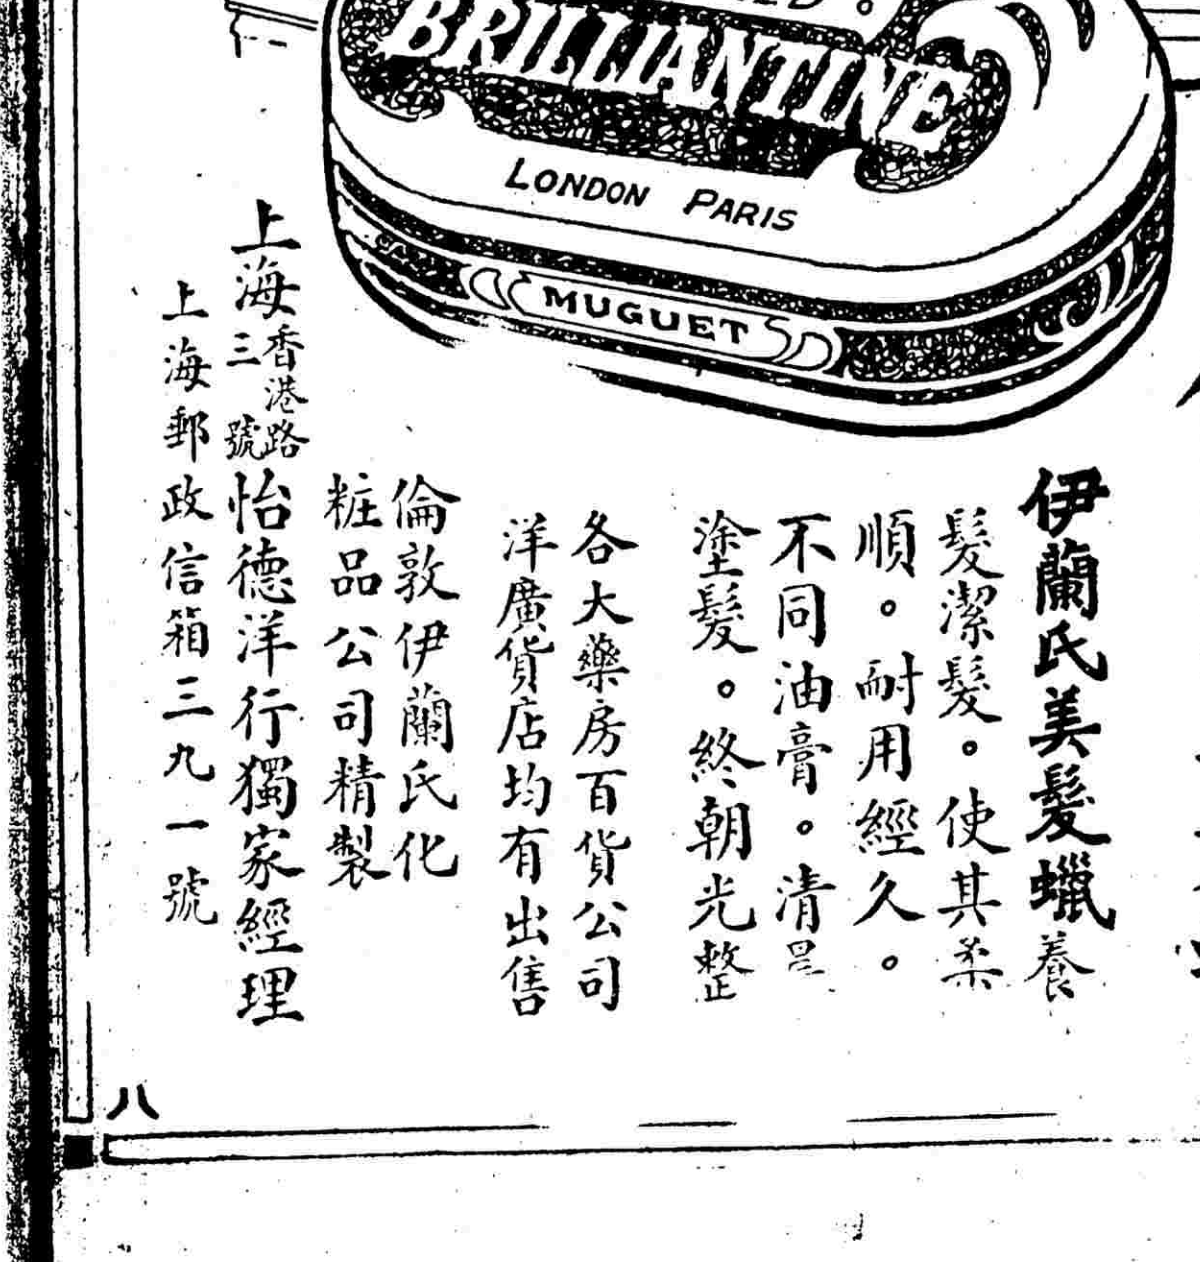 BRILLIANTINE
LONDON PARIS
MUGUET
伊蘭氏美髮蠟養
髮潔髮。使其柔
順。耐用經久。
不同油膏。清
塗髮。終朝光整
各大藥房百貨公司
洋廣貨店均有出售
倫敦伊蘭氏化
粧品公司精製
上海香港路三號怡德洋行獨家經理
上海郵政信箱三九一號
八